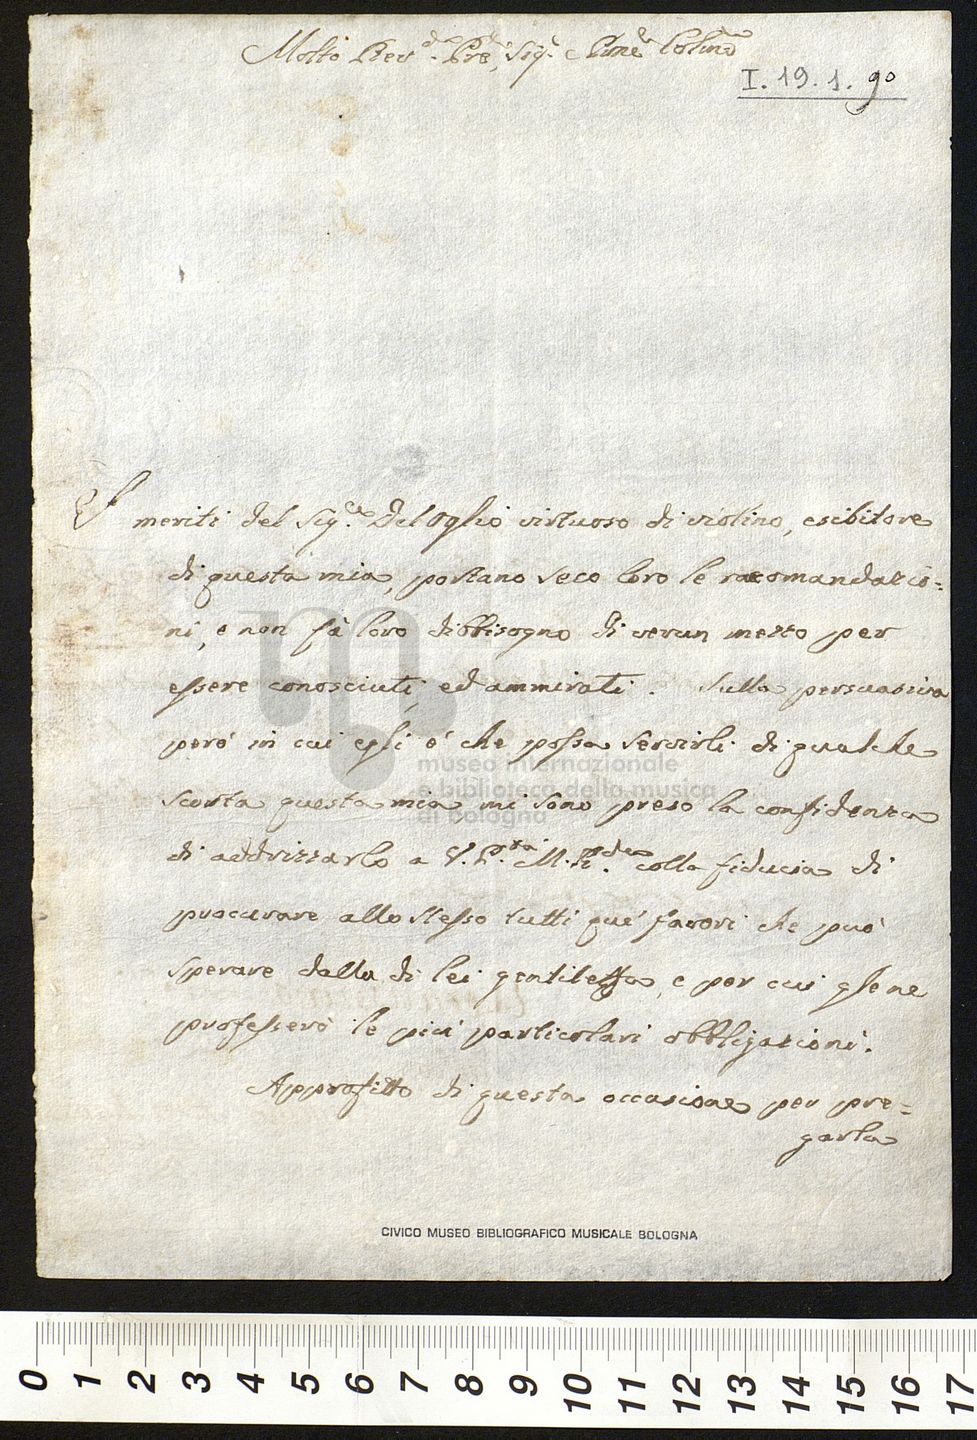 Molto Rev.do Pre, Sig.r Pne Colmo
I. 19. 1. 90
I meriti del Sig.re Dal Oglio virtuoso di violino, esibitore
di questa mia, portano seco loro le racomandatio=
ni, e non fà loro dibbisogno di verun mezzo per
essere conosciuti, ed ammirati. Sulla persuasiva
però in cui egli è che possa servirli di qualche
scorta questa mia mi sono preso la confidenza
di addrizzarlo a V. P.tà M. R.da colla fiducia di
procurare allo stesso tutti que' favori che può
sperare dalla di lei gentilezza, e per cui gliene
professerò le più particolari obbligazioni.
Approfitto di questa occasione per pre=
garla
museo internazionale
e biblioteca della musica
di bologna
CIVICO MUSEO BIBLIOGRAFICO MUSICALE BOLOGNA
0 1 2 3 4 5 6 7 8 9 10 11 12 13 14 15 16 17